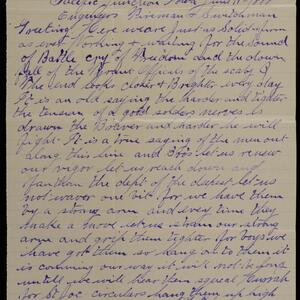 Pacific Junction Iowa June 11 1888
Engineers Fireman & Switchman
Greeting Here we are just as Solid & firm
as ever Working & waiting for the Sound
of Battle cry of freedom and the down
fall of the Tyrant officals of the scaby Q
The end looks closer & Brighter every day
It is an old saying the harder and tighter
the tension of a gold solders nerves is
drawn the Braver and harder he will
fight. It is a true saying of the men out
along this line and Boys let us renew
our vigor let us reach down and
fanthom the dept of the darkest let us
not waver one bit for we have them
by a strong arm and every time they
make a move let us strain our strong
arm and grip them tighter for boys we
have got them so hang to them it
is comming our way it will not be long
untill we will hear them squeal Hurrah
for St Joe circulars hang them up high